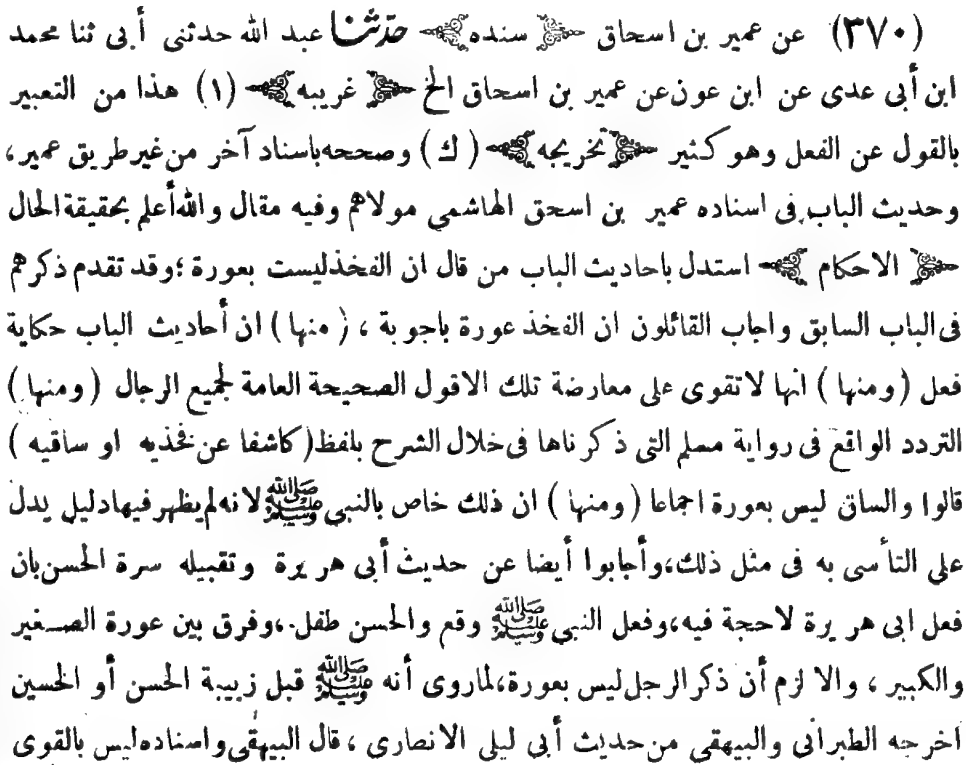 (٣٧٠) عن عمير بن اسحاق ﴿سنده﴾ حدّثنا عبد الله حدثنى أبى ثنا محمد
ابن أبى عدى عن ابن عون عن عمير بن اسحاق الخ ﴿غريبه﴾ (١) هذا من التعبير
بالقول عن الفعل وهو كثير ﴿تخريجه﴾ (ك) وصححه باسناد آخر من غير طريق عمير،
وحديث الباب فى اسناده عمير بن اسحق الهاشمي مولاهم وفيه مقال والله أعلم بحقيقة الحال
﴿الاحكام﴾ استدل باحاديث الباب من قال ان الفخذ ليست بعورة ؛ وقد تقدم ذكرهم
فى الباب السابق واجاب القائلون ان الفخذ عورة باجوبة ، (منها) ان أحاديث الباب حكاية
فعل (ومنها) انها لا تقوى على معارضة تلك الاقول الصحيحة العامة لجميع الرجال (ومنها)
التردد الواقع فى رواية مسلم التى ذكرناها فى خلال الشرح بلفظ (كاشفا عن فخذيه او ساقيه)
قالوا والساق ليس بعورة اجماعا (ومنها) ان ذلك خاص بالنبى ﷺ لانه لم يظهر فيها دليل يدل
على التأسى به فى مثل ذلك، وأجابوا أيضا عن حديث أبى هريرة وتقبيله سرة الحسن بان
فعل ابى هريرة لا حجة فيه، وفعل النبى ﷺ وقع والحسن طفل، وفرق بين عورة الصغير
والكبير ، والا لزم أن ذكر الرجل ليس بعورة، لما روى أنه ﷺ قبل زبيبة الحسن أو الحسين
اخرجه الطبرانى والبيهقى من حديث أبى ليلى الانصارى ، قال البيهقى واسناده ليس بالقوى